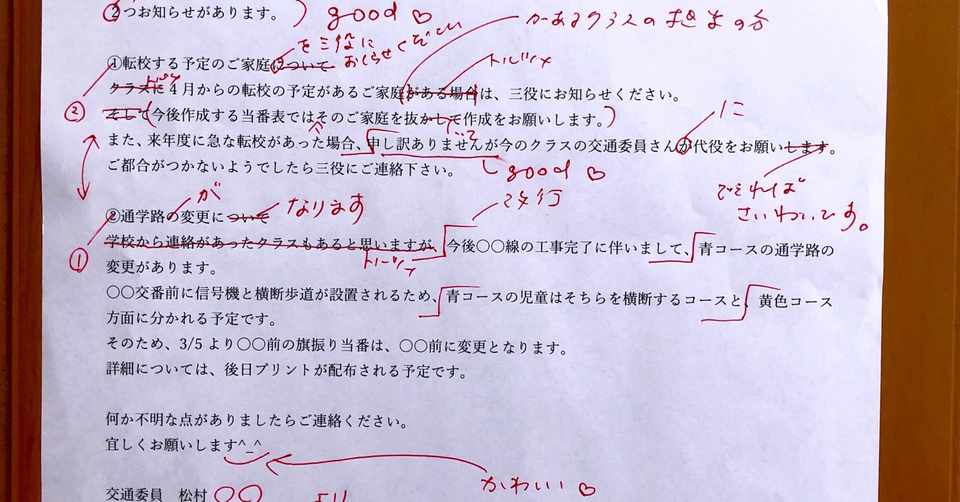 ②つお知らせがあります。
good
①転校する予定のご家庭について
を三役に
おしらせください
クラスに4月からの転校の予定があるご家庭がある場合は、三役にお知らせください。
トルツメ
②
そして今後作成する当番表ではそのご家庭を抜かして作成をお願いします。
に
また、来年度に急な転校があった場合、申し訳ありませんが今のクラスの交通委員さんが代役をお願いします。
ご都合がつかないようでしたら三役にご連絡下さい。
good
できれば
さいわいです。
改行
が
②通学路の変更について
なります
①
学校から連絡があったクラスもあると思いますが、今後〇〇線の工事完了に伴いまして、青コースの通学路の
変更があります。
トルツメ
〇〇交番前に信号機と横断歩道が設置されるため、青コースの児童はそちらを横断するコースと、黄色コース
方面に分かれる予定です。
そのため、3/5より〇〇前の旗振り当番は、〇〇前に変更となります。
詳細については、後日プリントが配布される予定です。
何か不明な点がありましたらご連絡ください。
宜しくお願いします^_^
かわいい
交通委員 松村